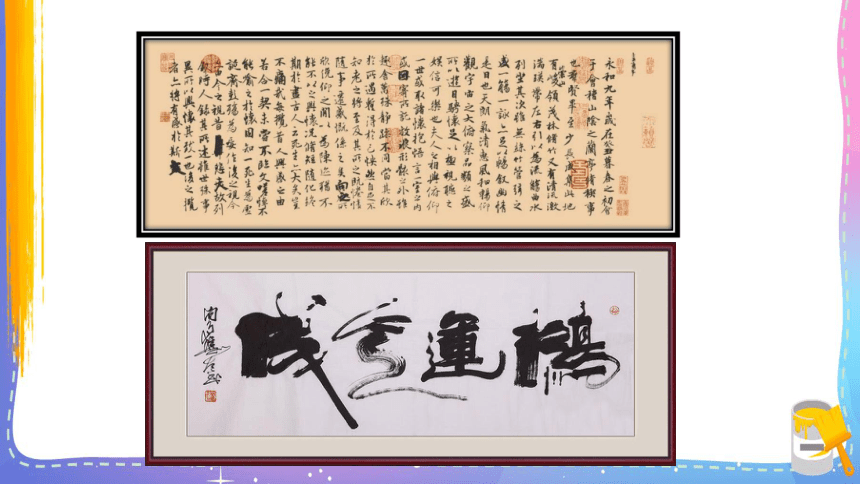 永和九年歲在癸丑暮春之初會
于會稽山陰之蘭亭脩稧事
也羣賢畢至少長咸集此地
有崇山峻領茂林脩竹又有清流激
湍暎帶左右引以為流觴曲水
列坐其次雖無絲竹管弦之
盛一觴一詠亦足以暢叙幽情
是日也天朗氣清惠風和暢仰
觀宇宙之大俯察品類之盛
所以遊目騁懷足以極視聽之
娛信可樂也夫人之相與俯仰
一世或取諸懷抱悟言一室之內
或因寄所託放浪形骸之外雖
趣舍萬殊靜躁不同當其欣
於所遇蹔得於己怏然自足不
知老之將至及其所之既惓情
隨事遷感慨係之矣向之所
欣俛仰之閒以為陳迹猶不
能不以之興懷況脩短隨化終
期於盡古人云死生亦大矣豈
不痛哉每攬昔人興感之由
若合一契未嘗不臨文嗟悼不
能喻之於懷固知一死生為虛
誕齊彭殤為妄作後之視今
亦由今之視昔悲夫故列
敘時人錄其所述雖世殊事
異所以興懷其致一也後之攬
者亦將有感於斯文
鴻運天成